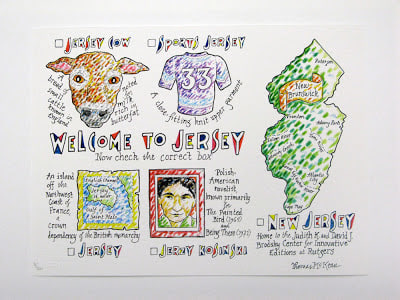 JERSEY COW
SPORTS JERSEY
A breed
of
small
cattle
raised in
England
noted
for
milk
rich in
butterfat.
33
A close-fitting knit upper garment
WELCOME TO JERSEY
Now check the correct box
An island off
of the
Northwest
Coast of
France,
a crown
dependency of the British monarchy
English Channel
Jersey
is over
here
Gulf of
Saint Malo
JERSEY
Polish-
American
novelist
known primarily
for
The Painted
Bird (1965)
and
Being There (1971)
JERZY KOSINSKI
New
Brunswick
Princeton
Asbury Park
Atlantic
City
Cape May
NEW JERSEY
Home to the Judith K. and David J.
Brodsky Center for Innovative
Editions at Rutgers
Thomas McKean